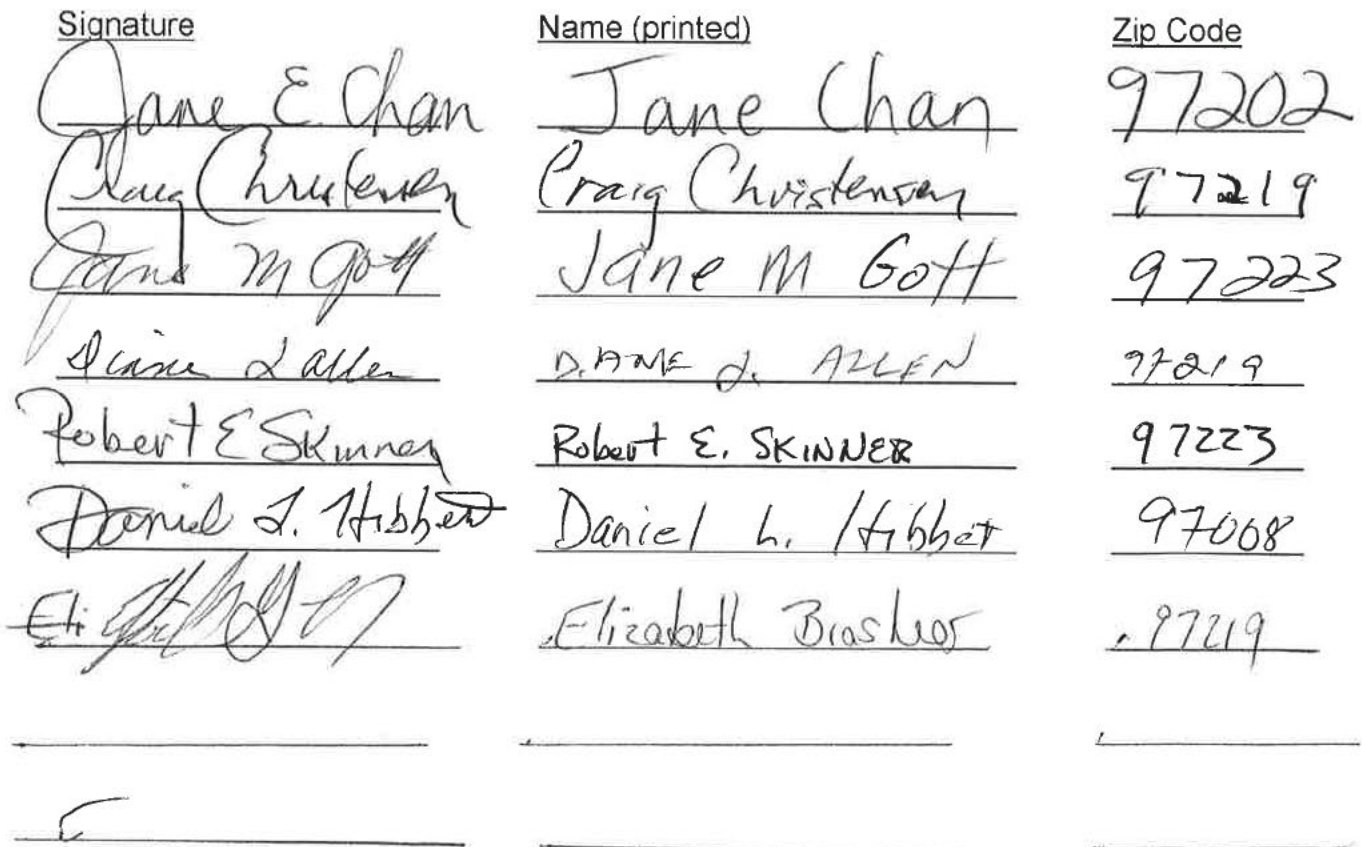 Signature Name (printed) Zip Code
Jane E Chan Jane Chan 97202
Craig Christensen Craig Christensen 97219
Jane M Gott Jane M Gott 97223
Diane L Allen DIANE L. ALLEN 97219
Robert E Skinner Robert E. SKINNER 97223
Daniel L. Hibbert Daniel L. Hibbert 97008
Elizabeth 97219